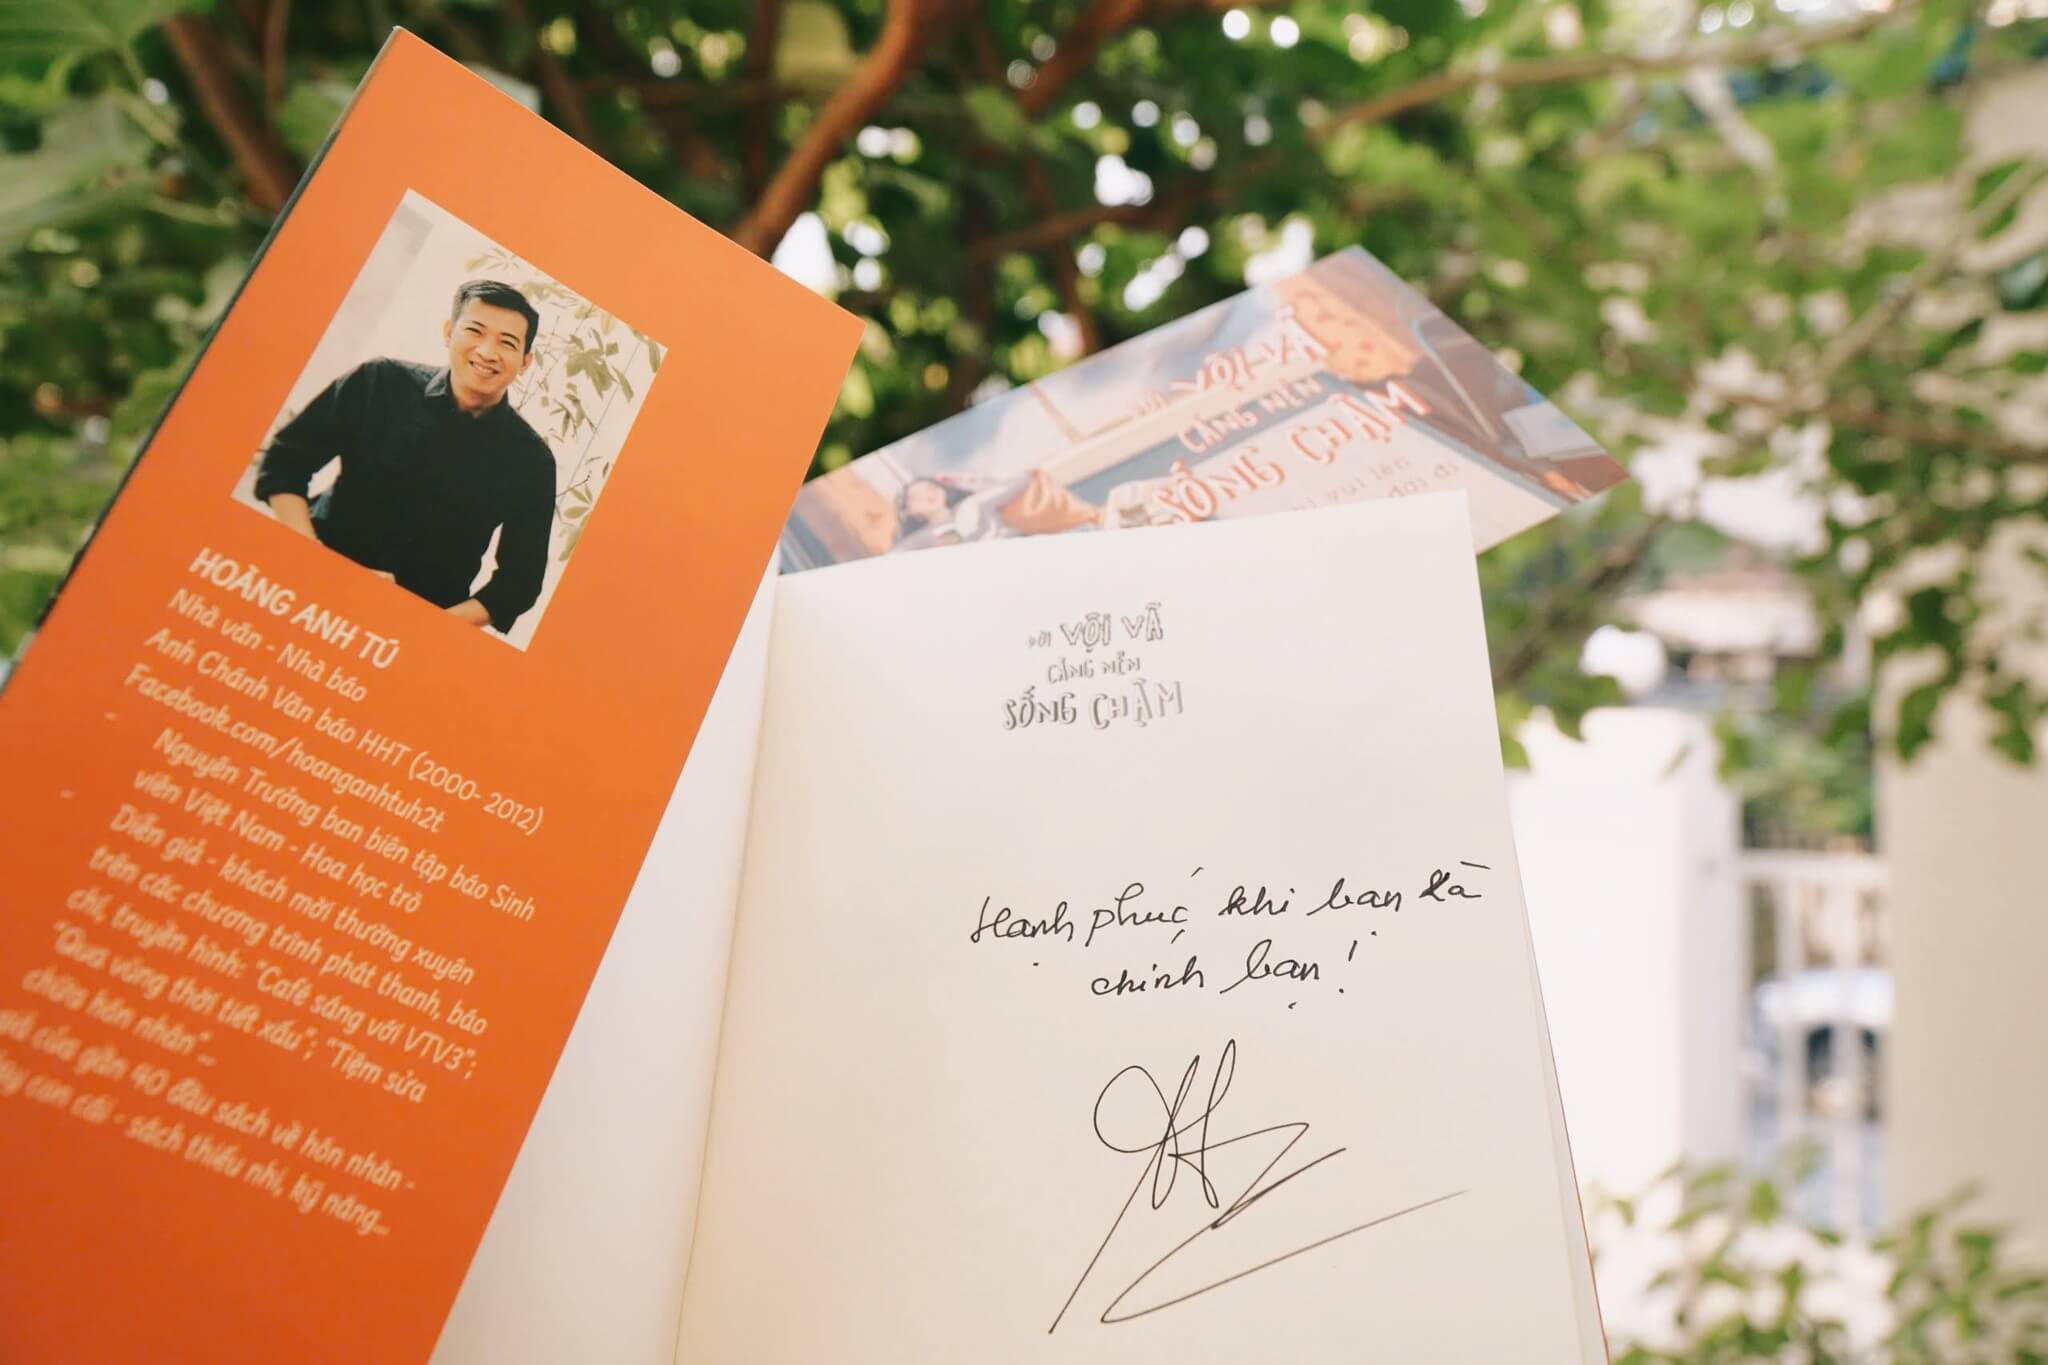 HOÀNG ANH TÚ
Nhà văn - Nhà báo
Anh Chánh Văn báo HHT (2000- 2012)
Facebook.com/hoanganhtuh2t
- Nguyên Trưởng ban biên tập báo Sinh
viên Việt Nam - Hoa học trò
- Diễn giả - khách mời thường xuyên
trên các chương trình phát thanh, báo
chí, truyền hình: "Café sáng với VTV3";
"Qua vùng thời tiết xấu"; "Tiệm sửa
chữa hôn nhân"...
giả của gần 40 đầu sách về hôn nhân -
dạy con cái - sách thiếu nhi, kỹ năng...
ĐỜI VỘI VÃ
CÀNG NÊN
SỐNG CHẬM
vui lên
đời đi
ĐỜI VỘI VÃ
CÀNG NÊN
SỐNG CHẬM
Hạnh phúc khi bạn là
chính bạn!